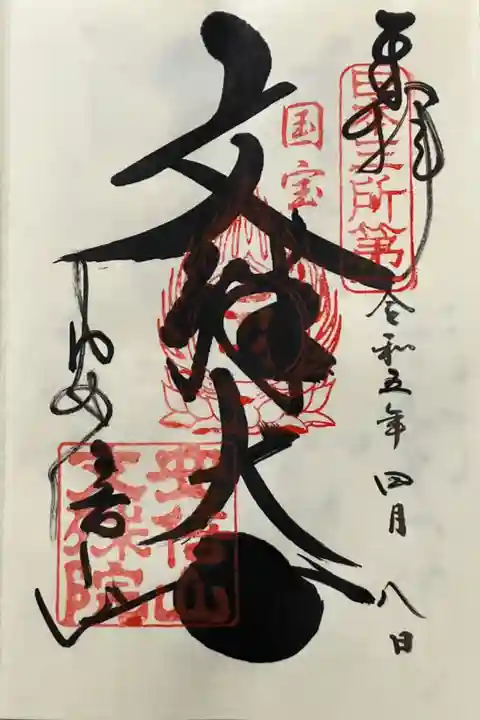 奉拝
日本三所第
令和五年四月八日
国宝
文殊大
安倍山
文殊院